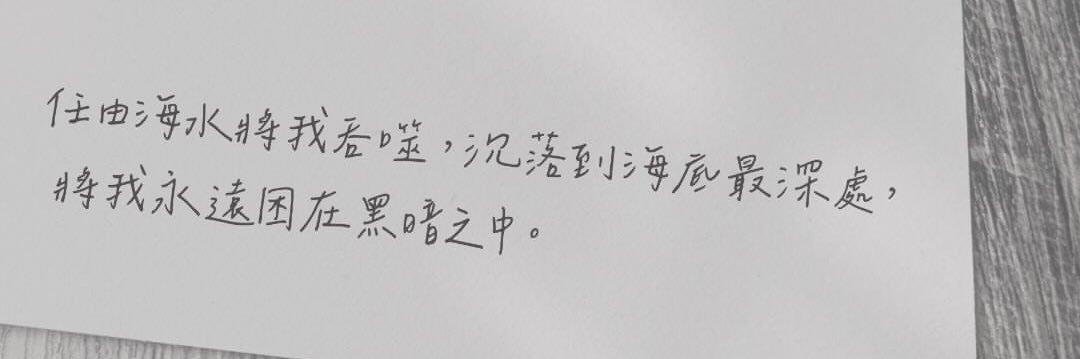 任由海水將我吞噬，沉落到海底最深處，
將我永遠困在黑暗之中。